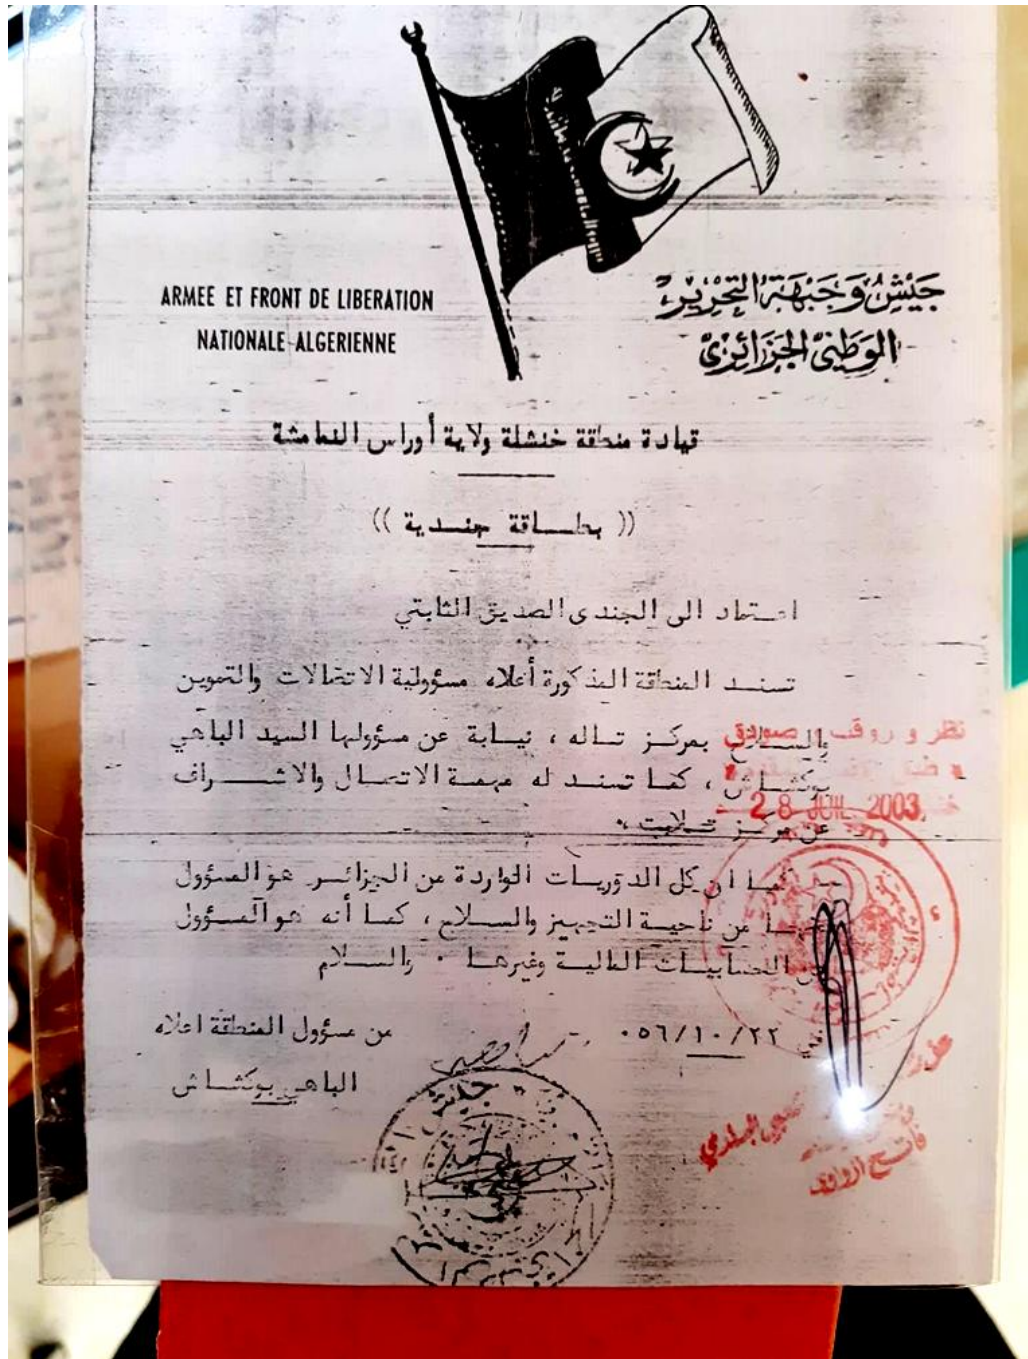 ARMEE ET FRONT DE LIBERATION
NATIONALE ALGERIENNE
جَيْشُ وَجَبْهَةُ التَّحْرِيْرِ
الوَطَنِىّ الجَزَائِرِىّ
قيادة منطقة خنشلة ولاية أوراس النمامشة
(( بطـــاقة جنــدية ))
اعــتماد الى الجندى الصديق الثابتي
تسنــد المنطقة المذكورة أعلاه مسؤولية الاتصالات والتموين
والســلاح بمركــز تــاله ، نيــابة عن مسؤولها السيد الباهي
بوكشــاش ، كمــا تسنــد له مهمــة الاتصــال والاشــراف
عن مركــز تــلابت .
كمــا ان كل الدوريــات الواردة من الجزائــر هو المسؤول
من ناحيــة التجهيــز والســلاح ، كمــا أنه هو المســؤول
الحسابيــات الماليــة وغيرهــا . والســلام
٥٦/١٠/٢٢.
من مسؤول المنطقة اعلاه
الباهي بوكشــاش
نظر و صودق
28 JUIL 2003
جيش